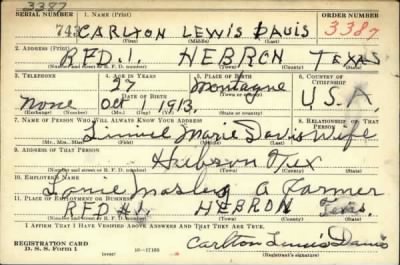 3387
SERIAL NUMBER 1. NAME (Print) ORDER NUMBER
743 CARLTON LEWIS DAVIS 3387
(First) (Middle) (Last)
2. ADDRESS (Print)
RFD.1. HEBRON TEXAS
(Number and street or R. F. D. number) (Town) (County) (State)
3. TELEPHONE 4. AGE IN YEARS 5. PLACE OF BIRTH 6. COUNTRY OF CITIZENSHIP
27 Montague
DATE OF BIRTH
none Oct 1 1913. U.S.A.
7. NAME OF PERSON WHO WILL ALWAYS KNOW YOUR ADDRESS 8. RELATIONSHIP OF THAT PERSON
Marie Davis Wife
(Mr., Mrs., Miss) (First) (Middle) (Last)
9. ADDRESS OF THAT PERSON
Tex
(Number and street or R. F. D. number) (Town) (County) (State)
10. EMPLOYER'S NAME
A Farmer
11. PLACE OF EMPLOYMENT OR BUSINESS
RFD #1 HEBRON Texas.
(Number and street or R. F. D. number) (Town) (County) (State)
I AFFIRM THAT I HAVE VERIFIED ABOVE ANSWERS AND THAT THEY ARE TRUE.
REGISTRATION CARD
D. S. S. Form 1 (over) 16—17105
Carlton Lewis Davis
(Registrant's signature)